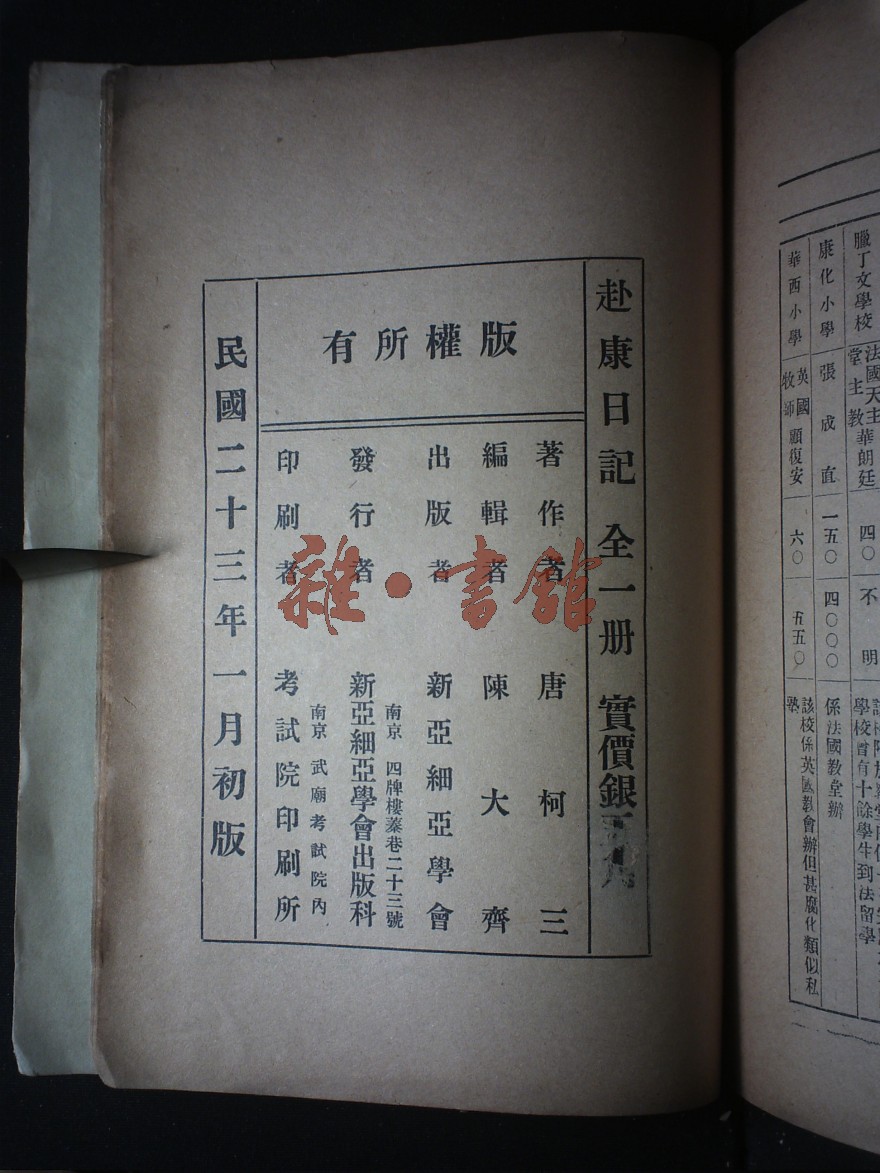 臘丁文學校 法國天主堂主教華朗廷 四〇 不明
學校曾有十餘學生到法留學
康化小學 張成直 一五〇 四〇〇〇 係法國教堂辦
華西小學 英國牧師顧復安 六〇 五五〇 該校係英國教會辦但甚腐化類似私塾
赴康日記 全一册 實價銀
版權所有
著作者 唐柯三
編輯者 陳大齊
出版者 新亞細亞學會
南京 四牌樓蓁巷二十三號
發行者 新亞細亞學會出版科
南京 武廟考試院內
印刷者 考試院印刷所
民國二十三年一月初版
雜·書館